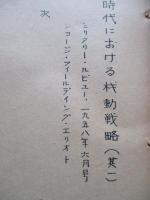 時代における機動戦略（其一）
ミリタリー・レビュー、一九五八年六月号
ジョージ・フィールディング・エリオット
次